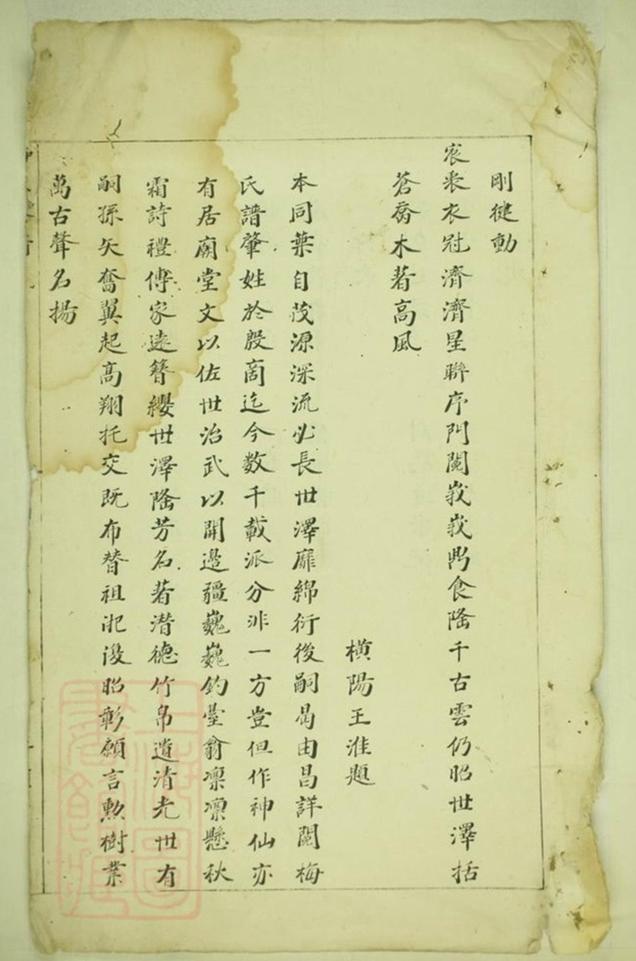 剛健動
裳衣冠濟濟星聯序門閥峩峩鼎食隆千古雲仍昭世澤括
蒼喬木著高風
橫陽王淮題
本同葉自茂源深流必長世澤靡綿衍後嗣曷由昌詳閱梅
氏譜肇姓於殷商迄今数千載派分非一方豈但作神仙亦
有居廟堂文以佐世治武以開邊疆巍巍釣臺翁凛凛懸秋
霜詩禮傳家遠簪纓世澤隆芳名著潜德竹帛遺清光世有
嗣孫矢奮翼起高翔托交既布替祖汜後昭彰願言勲樹業
萬古聲名揚